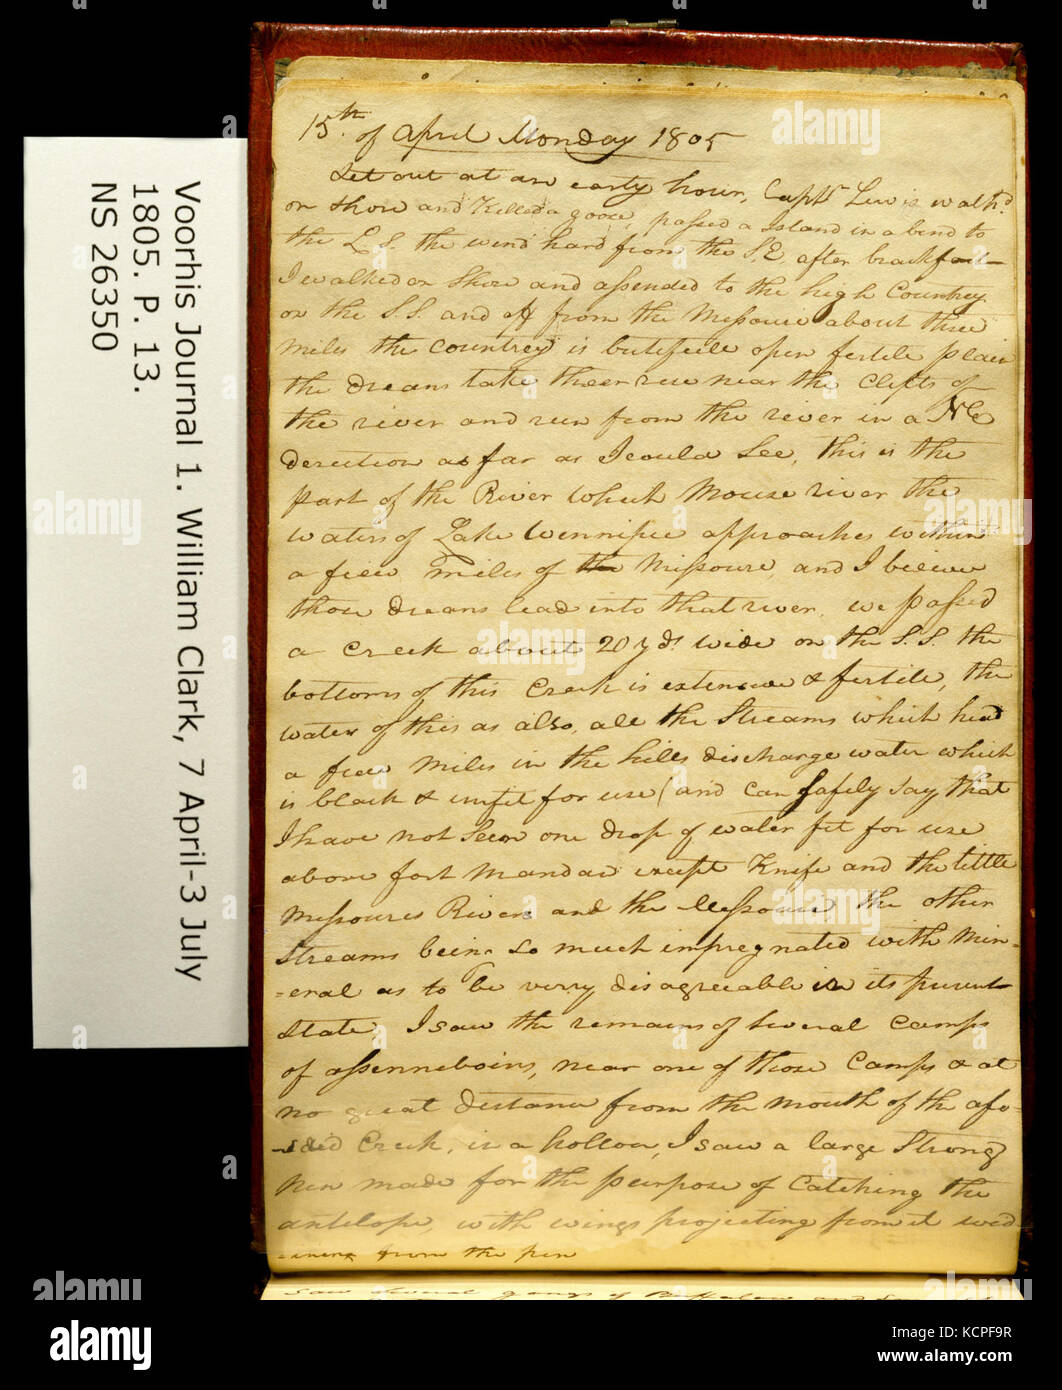 15th. of April Monday 1805
Set out at an early hour, Captn. Lewis walkd.
on Shore and Killed a goose, passed a Island in a bend to
the L. S. the wind hard from the S. E. after brackfast
I walked on Shore and assended to the high Countrey
on the S. S. and off from the Missouri about three
miles the Countrey is butifull open fertile plain
the dreans take theer rise near the Clifts of
the river and run from the river in a N. E
derection as far as I could See, this is the
part of the River which Mouse river the
waters of Lake Winnipic approaches within
a fiew miles of the Missouri, and I believe
those dreans lead into that river. we passed
a Creek about 20 yds. wide on the S. S. the
bottoms of this Creek is extensive & fertile, the
water of this as also, all the Streams which head
a fiew miles in the hills discharge water which
is black & unfit for use (and can Safely Say that
I have not Seen one drop of water fit for use
above fort Mandan except Knife and the little
Missouris Rivers and the Missouri, the other
Streams being So much impregnated with min=
=eral as to be verry disagreeable in its present
State. I saw the remains of Several Camps
of Assenneboins, near one of those Camps & at
no great distance from the mouth of the afo=
=sdid Creek, in a hollow, I saw a large Strong
pen made for the purpose of Catching the
antelope, with wings projecting from it wid=
=ining from the pen
Saw Several gangs of Buffalow and
Voorhis Journal 1. William Clark, 7 April-3 July
1805. P. 13.
NS 26350
alamy
a
alamy stock photo
KCPF9R
www.alamy.com